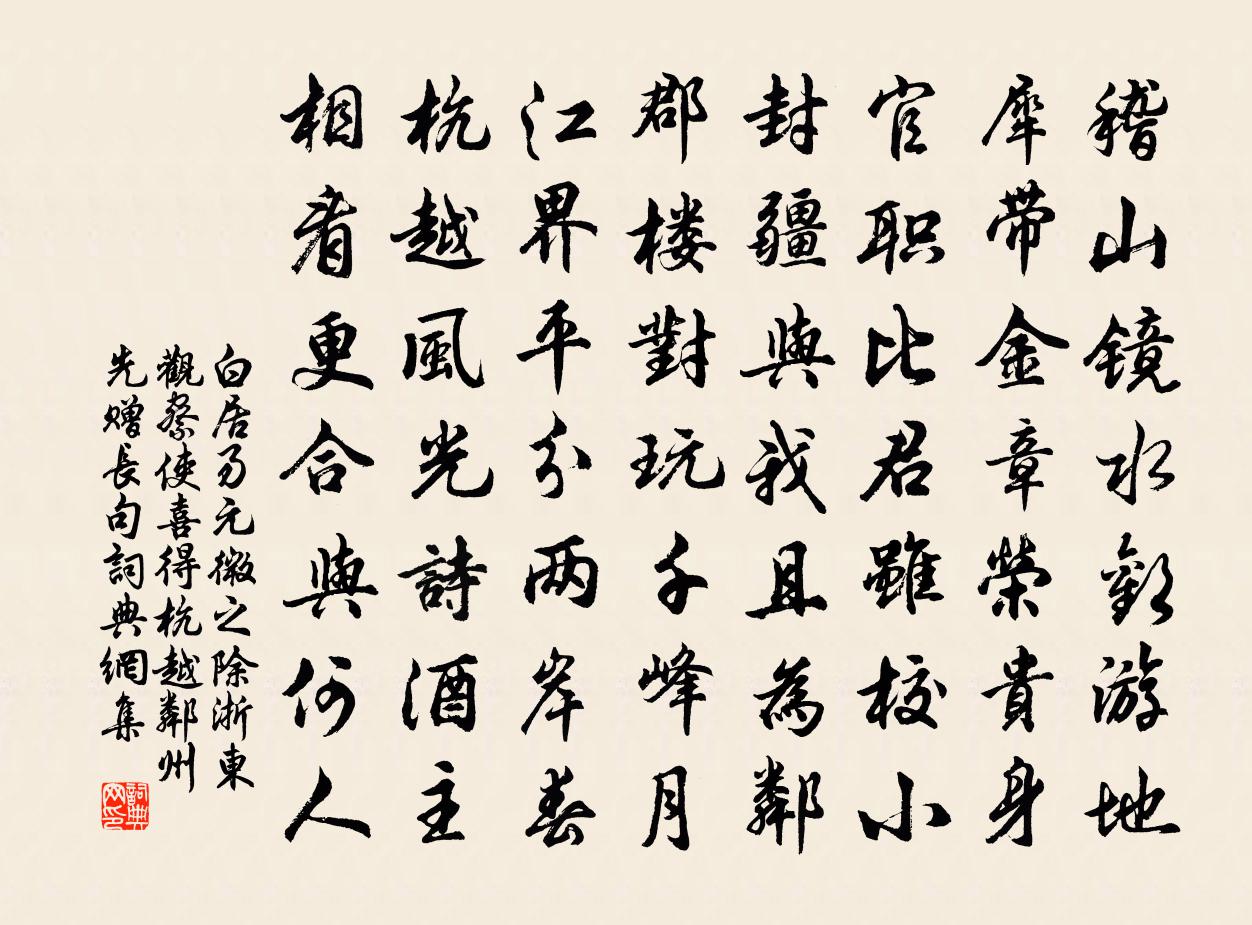 稽山镜水歡游地
犀带金章榮貴身
官职比君雖校小
封疆與我且為鄰
郡楼對玩千峰月
江界平分两岸春
杭越風光詩酒主
相看更合與何人
白居易元微之除浙東
觀察使喜得杭越鄰州
先赠長句詞典網集
詞典
网印